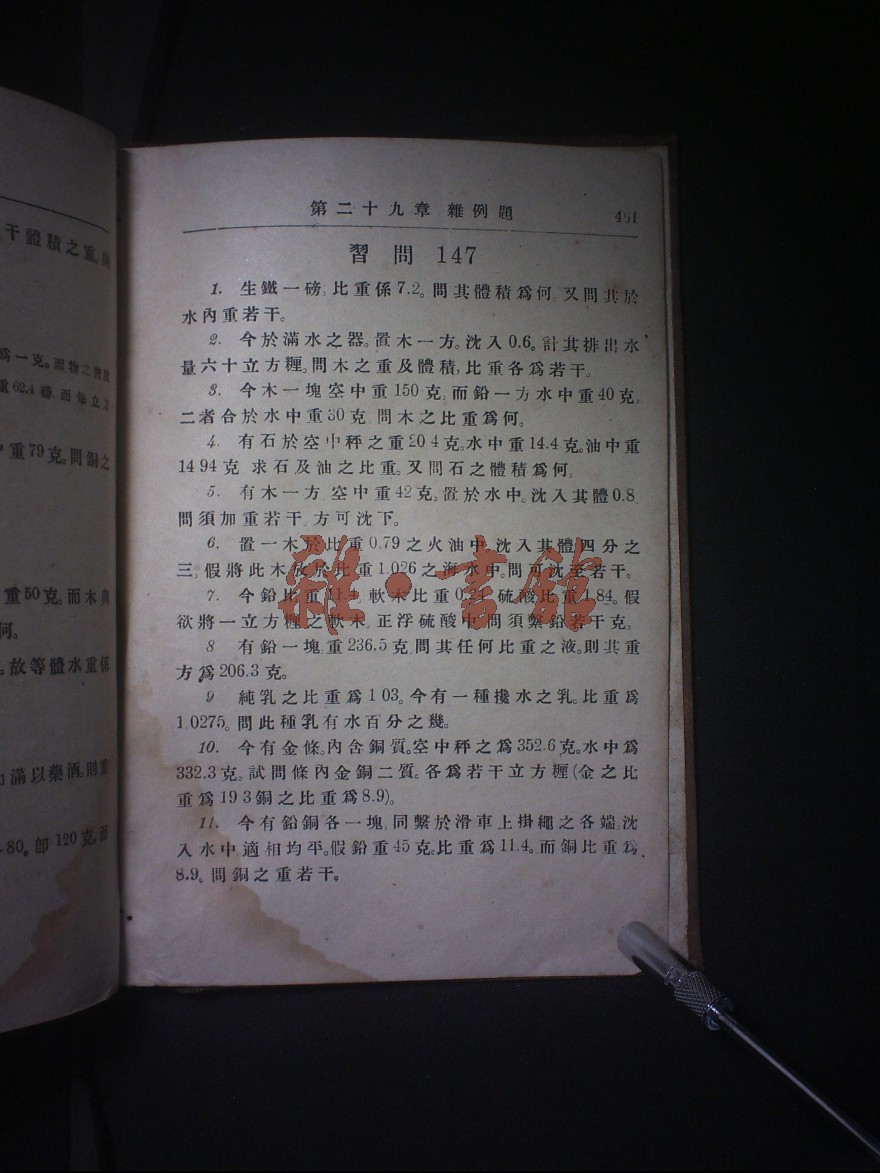 干體積之重與
爲一克。而物之密度
重62.4磅.而每立方
重79克。問銅之
重50克。而木與
何。
。故等體水重係
滿以藥酒。則重
80。卽120克。而
第二十九章 雜例題 461
習問 147
1. 生鐵一磅。比重係7.2。問其體積爲何。又問其於
水內重若干。
2. 今於滿水之器。置木一方。沈入0.6。計其排出水
量六十立方糎。問木之重及體積,比重各爲若干。
3. 今木一塊空中重150克,而鉛一方水中重40克,
二者合於水中重30克 問木之比重爲何。
4. 有石於空中秤之重20 4克。水中重14.4克。油中重
14 94克 求石及油之比重。又問石之體積爲何。
5. 有木一方 空中重42克。置於水中。沈入其體0.8.
問須加重若干。方可沈下。
6. 置一木於比重0.79之火油中。沈入其體四分之
三。假將此木放於比重1.026之海水中。問可沈至若干。
7. 今鉛比重11.4 軟木比重0.24 硫酸比重1.84。假
欲將一立方糎之軟木。正浮硫酸中。問須繫鉛若干克。
8 有鉛一塊。重236.5克問其任何比重之液。則其重
方爲206.3克。
9 純乳之比重爲1 03。今有一種攙水之乳。比重爲
1.0275。問此種乳有水百分之幾。
10. 今有金條。內含銅質。空中秤之爲352.6克。水中爲
332.3克。試問條內金銅二質。各爲若干立方糎(金之比
重爲19 3銅之比重爲8.9)。
11. 今有鉛銅各一塊。同繫於滑車上掛繩之各端。沈
入水中適相均平。假鉛重45克。比重爲11.4。而銅比重爲
8.9。問銅之重若干。
雜·書館